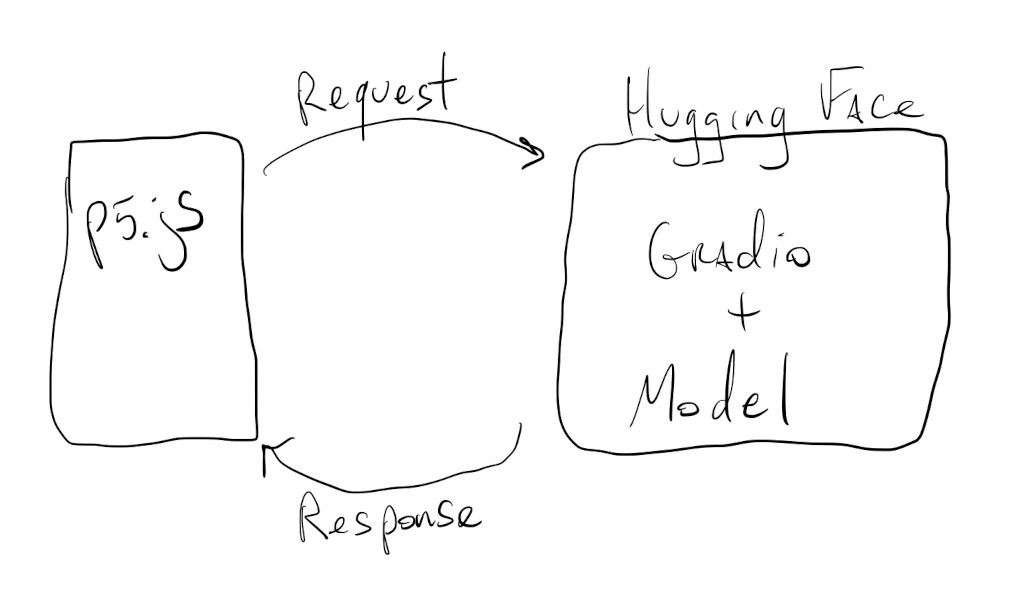 Request
Hugging Face
p5.js
Gradio
+
Model
Response